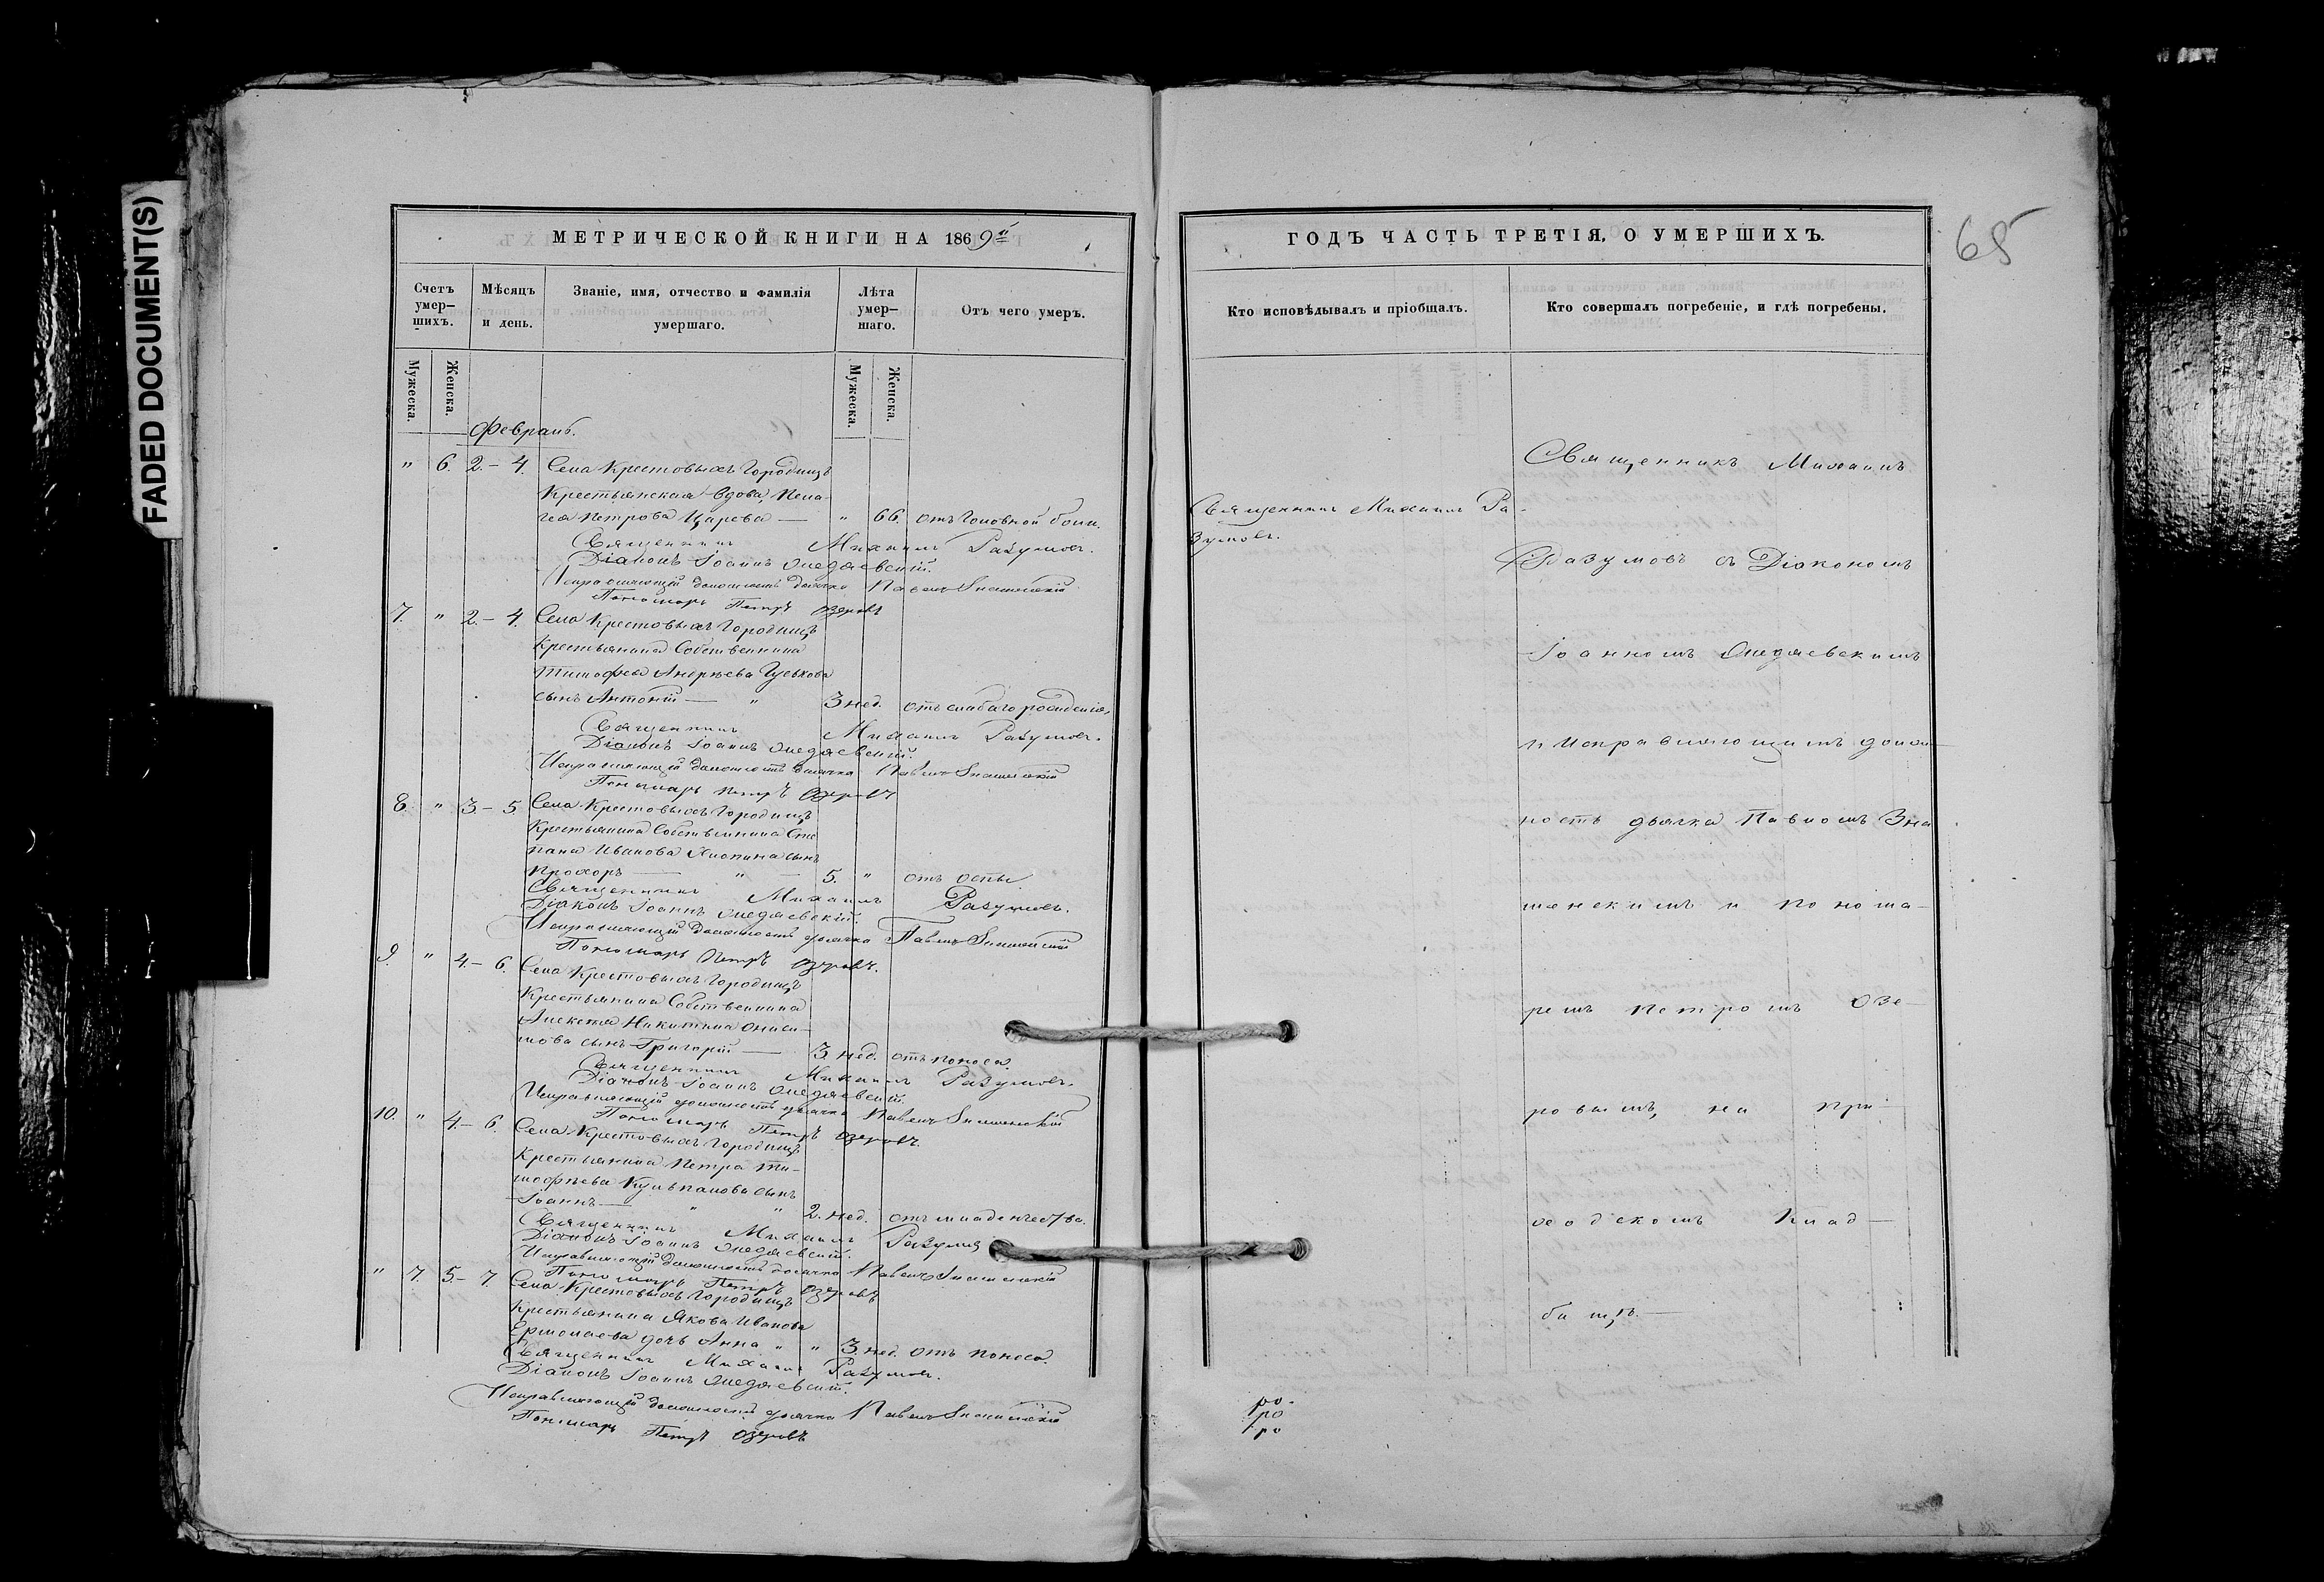 FADED DOCUMENT(S)
МЕТРИЧЕСКОЙ КНИГИ НА 1869й
Счетъ умерших.
Мѣсяцъ и день.
Званіе, имя, отчество и фамилія умершаго.
Лѣта умершаго.
Отъ чего умеръ.
Мужеска.
Женска.
Мужеска.
Женска.
Февраль.
" 6. 2.– 4. Села Крестовыхъ Городищъ
Крестьянская вдова Пела-
гея Петрова Царева — " 66. отъ головной боли.
Священникъ Михаилъ Разумовъ.
Діаконъ Іоаннъ
Исправляющій должность дьячка Павелъ Знаменскій
Пономарь Петръ Озеровъ
7. " 2.– 4. Села Крестовыхъ Городищъ
Крестьянина Собственника
Тимофея Андреева Гуськова
сынъ Антоній — " 3 нед. отъ слабаго рожденія.
Священникъ Михаилъ Разумовъ.
Діаконъ Іоаннъ
Исправляющій должность дьячка Павелъ Знаменскій
Пономарь Петръ Озеровъ
8. " 3.– 5 Села Крестовыхъ Городищъ
Крестьянина Собственника Сте
пана Иванова сынъ
Прохоръ — " — 5. " отъ оспы.
Священникъ Михаилъ Разумовъ.
Діаконъ Іоаннъ
Исправляющій должность дьячка Павелъ Знаменскій
Пономарь Петръ Озеровъ.
9. " 4.– 6. Села Крестовыхъ Городищъ
Крестьянина Собственника
Алексея Никитина Ониси-
мова сынъ Григорій — 3 нед. отъ поноса.
Священникъ Михаилъ Разумовъ.
Діаконъ Іоаннъ
Исправляющій должность дьячка Павелъ Знаменскій
Пономарь Петръ Озеровъ.
10. " 4.– 6. Села Крестовыхъ Городищъ
Крестьянина Петра Ти-
мофѣева сынъ
Іоаннъ — " " 2. нед. отъ младенчества.
Священникъ Михаилъ Разумовъ
Діаконъ Іоаннъ
Исправляющій должность дьячка Павелъ Знаменскій
Пономарь Петръ Озеровъ
" 7. 5.– 7. Села Крестовыхъ Городищъ
Крестьянина Якова Иванова
Ермолаева дочь Анна " " 3. нед. отъ поноса.
Священникъ Михаилъ Разумовъ.
Діаконъ Іоаннъ
Исправляющій должность дьячка Павелъ Знаменскій
Пономарь Петръ Озеровъ
ГОДЪ ЧАСТЬ ТРЕТІЯ, О УМЕРШИХЪ.
65
Кто исповѣдывалъ и пріобщалъ.
Кто совершалъ погребеніе, и гдѣ погребены.
Священникъ Михаилъ Ра-
зумовъ.
Священникъ Михаилъ
Разумовъ съ Діакономъ
Іоанномъ
и исправляющимъ долж-
ность дьячка Павломъ Зна
менскимъ и понома-
ремъ Петромъ Озе-
ровымъ, на при-
ходскомъ клад-
бищѣ. —
ро-
ро
ро